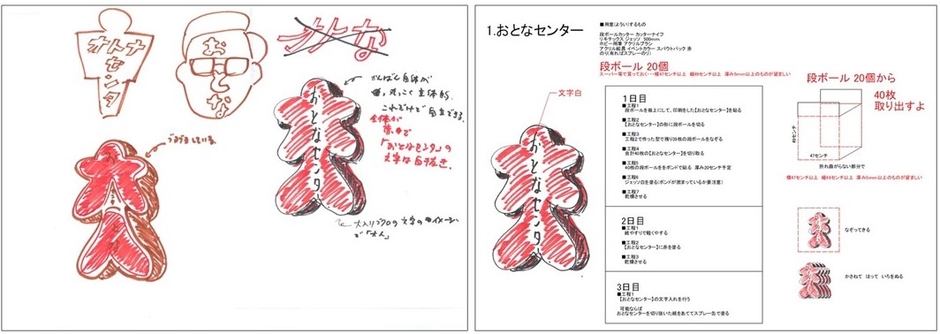 オトナ
センタ
おとな
おとな
ごめましている
おとなセンター
かんばん自体が
これだけで自立できる。
全体が
赤で
「おとなセンター」の
文字は白抜き。
大人
1.おとなセンター
文字白
おとなセンター
■用意(ようい)するもの
段ボールカッター カッターナイフ
リキテックス ジェッソ 500mm
ホビー用筆 アクリルブラシ
アクリル絵具 イベントカラー スパウトパック 赤
のり(有ればスプレーのり)
段ボール 20個
1日目
■工程1
段ボールを板上にして、印刷をした【おとなセンター】を貼る
■工程2
【おとなセンター】の形に段ボールを切る
■工程3
工程2で作った型で残り39枚の段ボールをなぞる
■工程4
合計40枚の【おとなセンター】を切り取る
■工程5
40枚の段ボールををボンドで貼る 厚み20センチ予定
■工程6
ジェッソ白を塗る(ボンドが固まっているか要注意)
■工程7
乾燥させる
2日目
■工程1
紙やすりで軽くやする
■工程2
【おとなセンター】に赤を塗る
■工程3
乾燥させる
3日目
■工程1
【おとなセンター】の文字入れを行う
可能ならば
おとなセンターを切り抜いた紙をあててスプレー缶で塗る
段ボール 20個から
40枚
取り出すよ
47センチ
折れ曲がらない部分で
横47センチ以上 縦69センチ以上 厚み5mm以上のものが望ましい
なぞってきる
かさねて はって いろをぬる